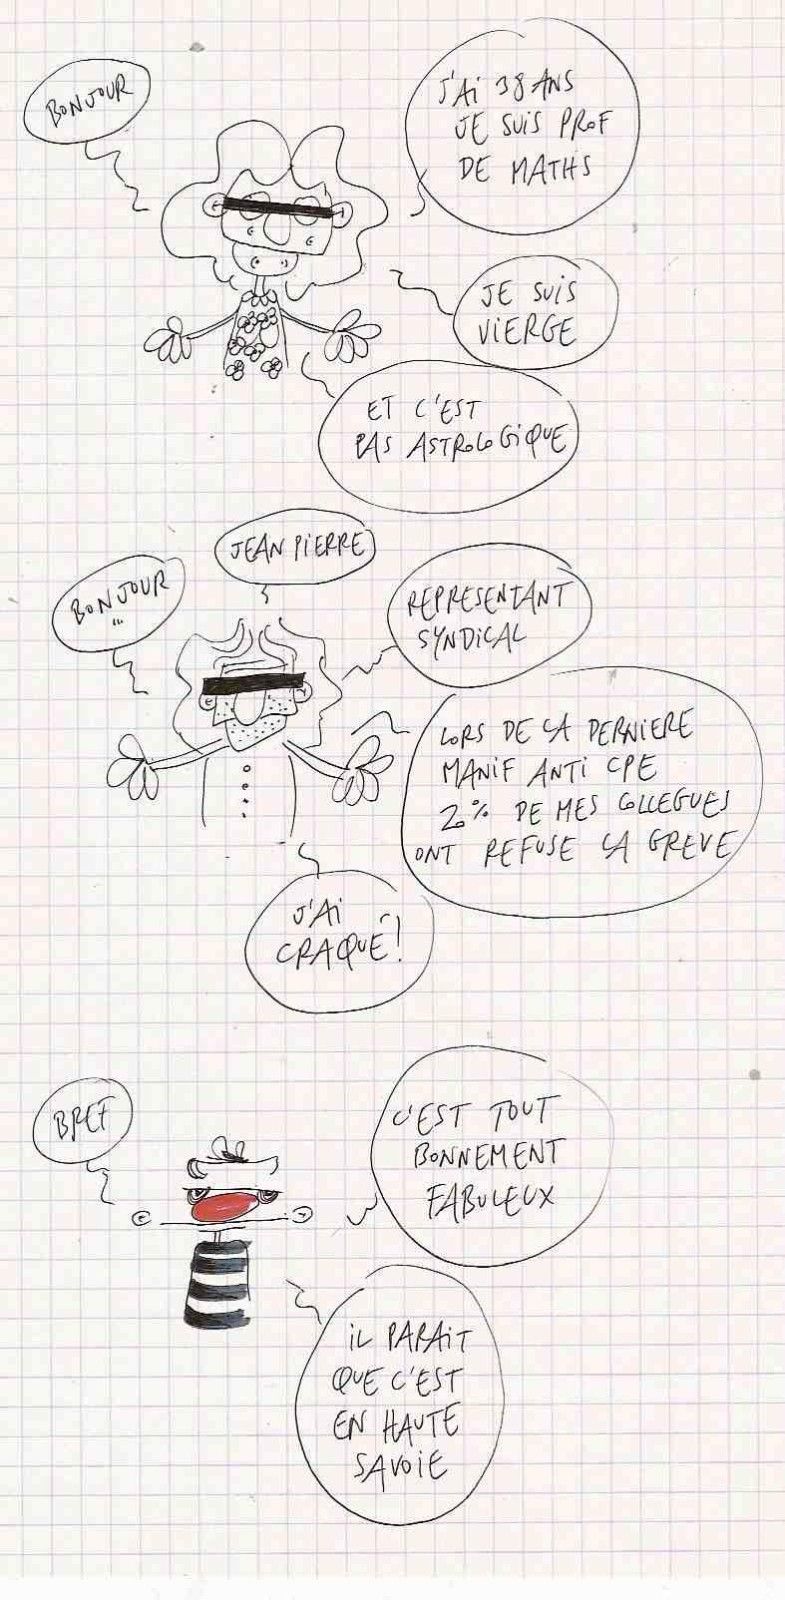 BONJOUR
J'Ai 38 ANS
JE SUIS PROF
DE MATHS
JE SUIS
ViERGE
ET C'EST
PAS ASTROLOGiQUE
JEAN PiERRE
BONJOUR
...
REPRESENTANT
SYNDiCAL
LORS DE LA DERNiERE
MANiF ANTi CPE
20% DE MES COLLEGUES
ONT REFUSE LA GREVE
J'Ai
CRAQUÉ!
BREF
C'EST TOUT
BONNEMENT
FABULEUX
iL PARAiT
QUE C'EST
EN HAUTE
SAVOiE